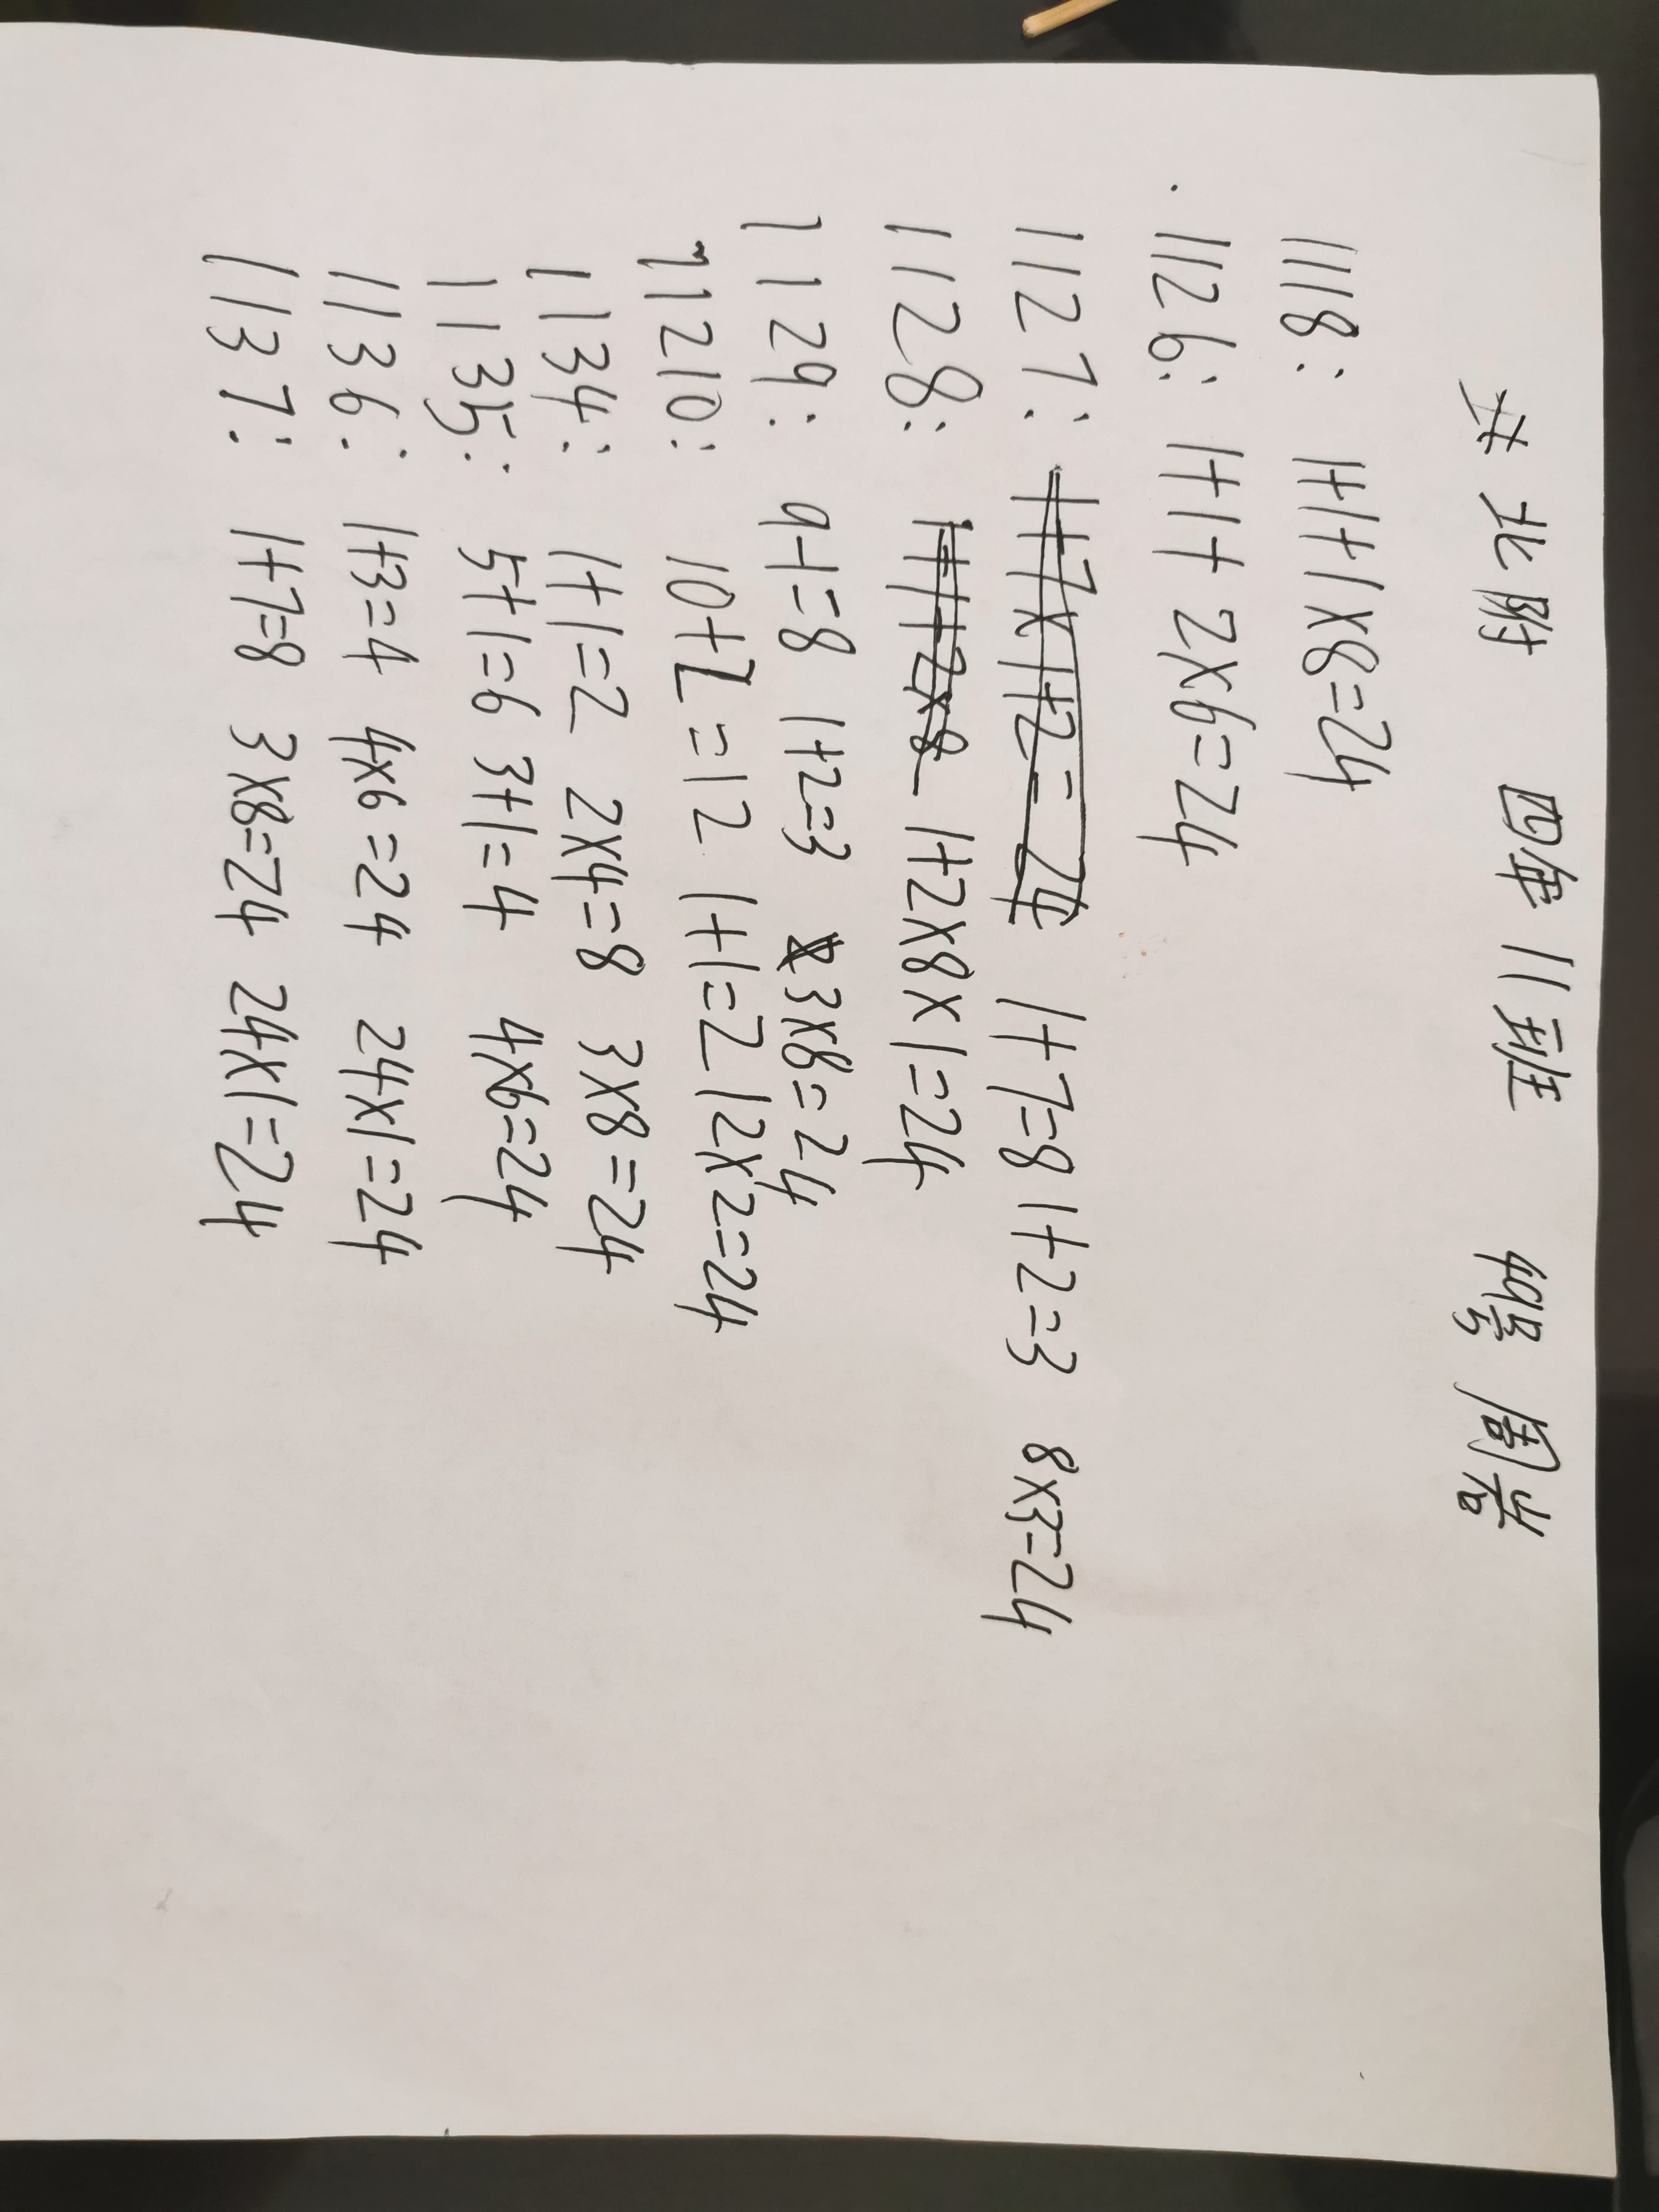 北附 四年11班 周岩
1118: 1+1+1×8=24
1126: 1+1+2×6=24
1127: 1+7×1+2=24 1+7=8 1+2=3 8×3=24
1128: 1+1+2×8 1+2×8×1=24
1129: 9-1=8 1+2=3 3×8=24
11210: 10+2=12 1+1=2 12×2=24
1134: 1+1=2 2×4=8 3×8=24
1135: 5+1=6 3+1=4 4×6=24
1136: 1+3=4 4×6=24 24×1=24
1137: 1+7=8 3×8=24 24×1=24